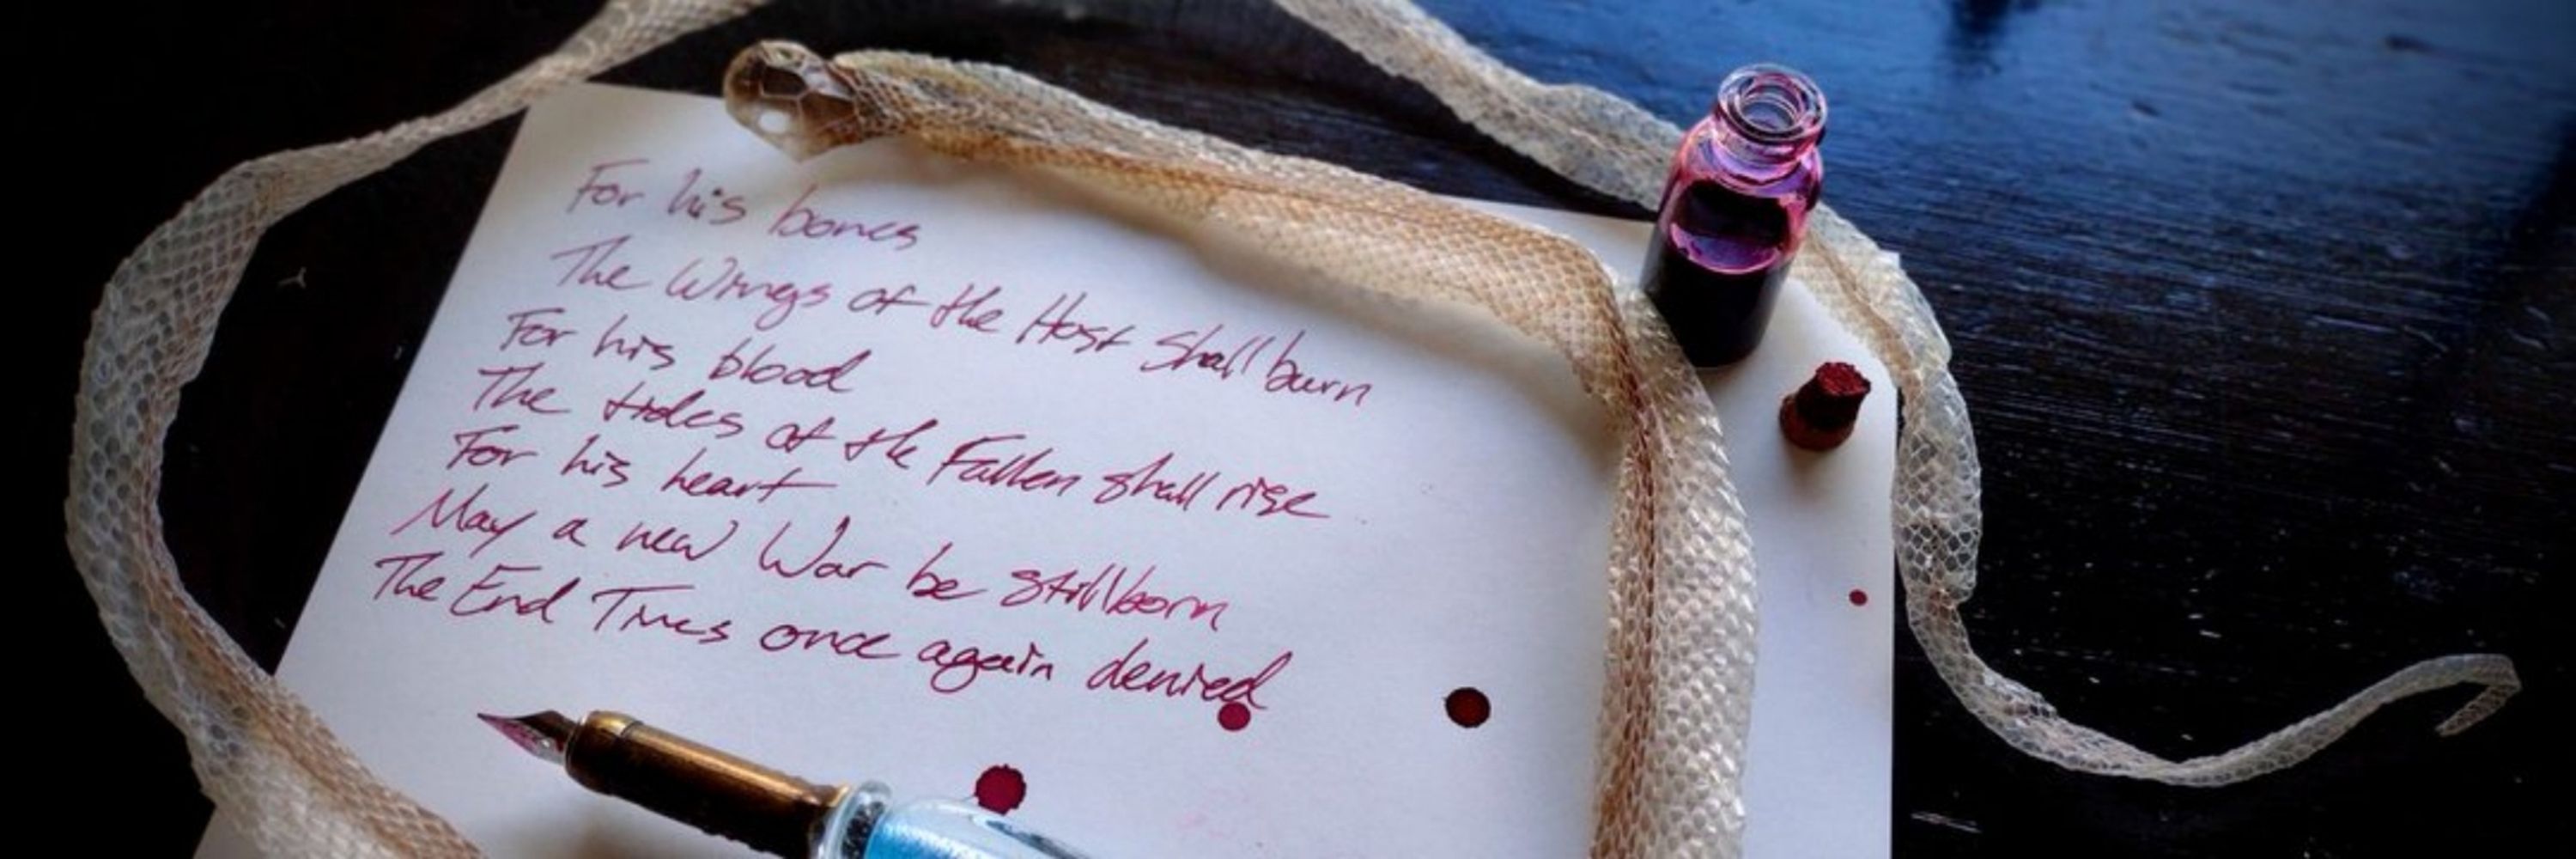 For his bones
The Wings of the Host shall burn
For his blood
The tides of the Fallen shall rise
For his heart
May a new War be stillborn
The End Times once again denied